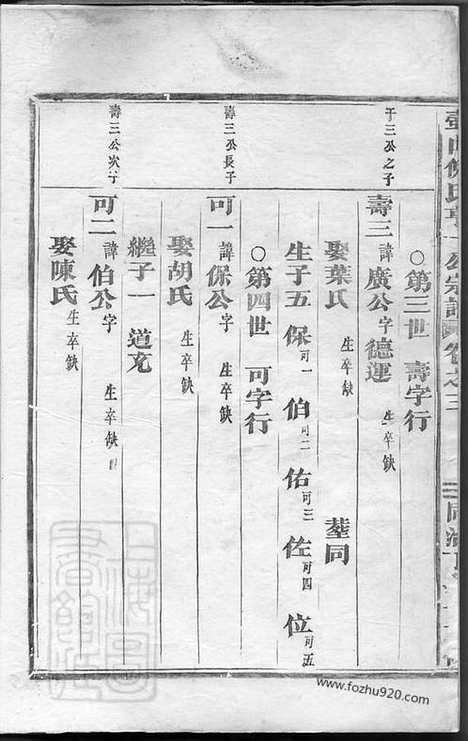 公宗譜 卷之三
○第三世 壽字行
于三公之子
壽三 諱廣公字德運 生卒缺
娶葉氏 生卒缺 塟同
生子五 保可一 伯可二 佑可三 佐可四 位可五
○第四世 可字行
壽三公長子
可一 諱保公字 生卒缺
娶胡氏 生卒缺
繼子一 道充
壽三公次子
可二 諱伯公字 生卒缺
娶陳氏 生卒缺
www.fozhu920.com